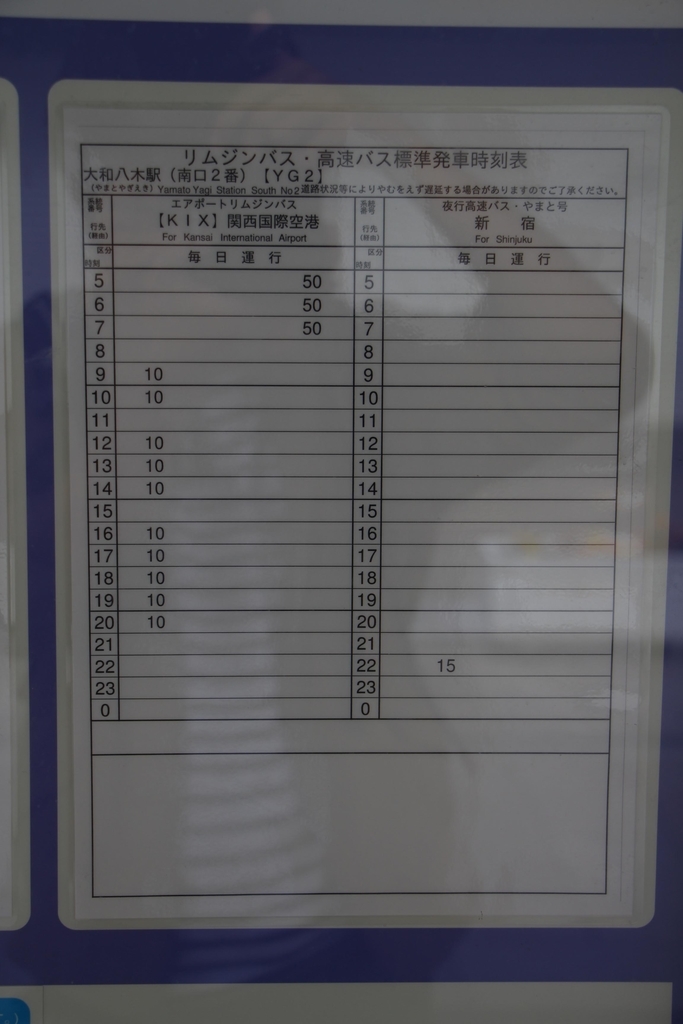 リムジンバス・高速バス標準発車時刻表
大和八木駅（南口２番）【ＹＧ２】
（やまとやぎえき）Yamato Yagi Station South No2 道路状況等によりやむをえず遅延する場合がありますのでご了承ください。
系統番号 エアポートリムジンバス 系統番号 夜行高速バス・やまと号
行先（経由） 【ＫＩＸ】関西国際空港 行先（経由） 新 宿
For Kansai International Airport For Shinjuku
区分 時刻 毎 日 運 行 区分 時刻 毎 日 運 行
5 50 5
6 50 6
7 50 7
8 8
9 10 9
10 10 10
11 11
12 10 12
13 10 13
14 10 14
15 15
16 10 16
17 10 17
18 10 18
19 10 19
20 10 20
21 21
22 22 15
23 23
0 0